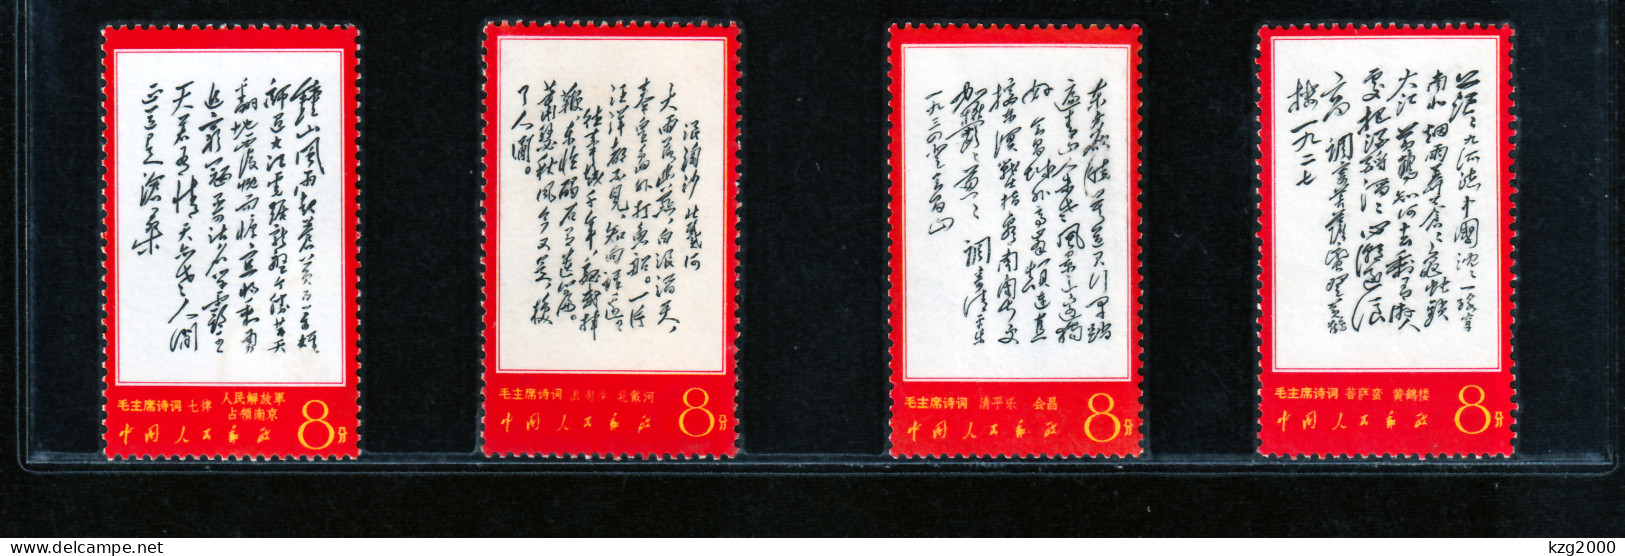 鍾山風雨起蒼黃百万雄
師過大江虎踞龍盤今勝昔天
翻地覆慨而慷宜將剩勇
追窮寇不可沽名學霸王
天若有情天亦老人間
正道是滄桑
毛主席诗词 七律 人民解放軍
占領南京
中国人民邮政 8分
浪淘沙 北戴河
大雨落幽燕，白浪滔天，
秦皇島外打魚船。一片
汪洋都不見，知向誰邊？
往事越千年，魏武揮
鞭，東臨碣石有遺篇。
蕭瑟秋風今又是，換
了人間。
毛主席诗词 浪淘沙 北戴河
中国人民邮政 8分
东方欲晓莫道君行早踏
遍青山人未老风景这边独
好 会昌城外高峰颠连直
接东溟战士指看南粤更
加郁郁葱葱 调寄清平乐
一九三四登会昌山
毛主席诗词 清平乐 会昌
中国人民邮政 8分
茫茫九派流中國沈沈一線穿
南北烟雨莽蒼蒼龜蛇鎖
大江 黄鶴知何去剩有游人
處把酒酹滔滔心潮逐浪
高 調寄菩薩蠻登黄鶴
樓 一九二七
毛主席诗词 菩萨蛮 黄鹤楼
中国人民邮政 8分
delcampe.net
kzg2000